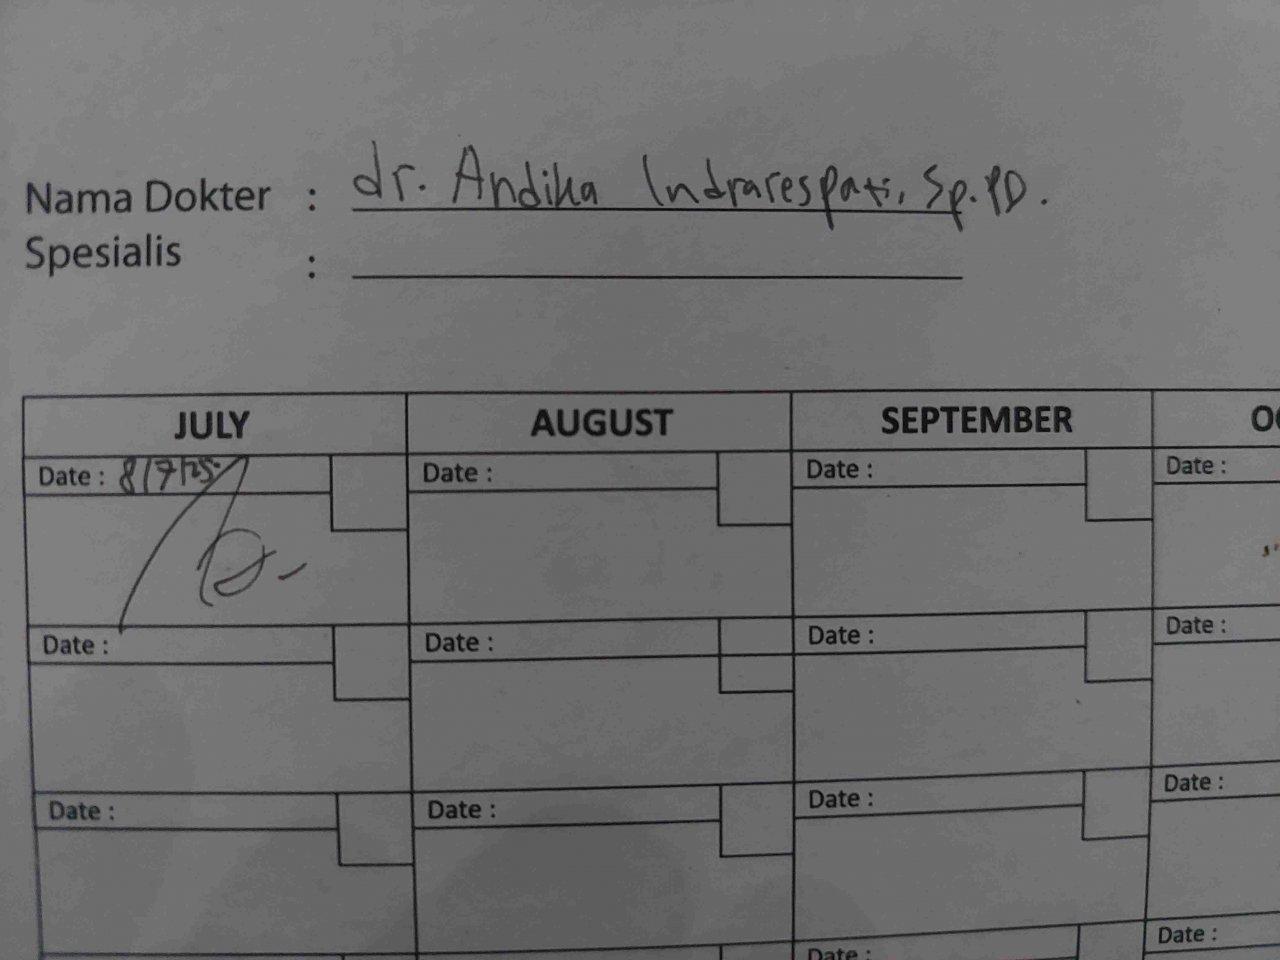 Nama Dokter : dr. Andika Indrarespati, Sp.PD.
Spesialis :
JULY AUGUST SEPTEMBER
Date : 8/7/25 Date : Date : Date :
Date : Date : Date : Date :
Date : Date : Date : Date :
Date : Date :